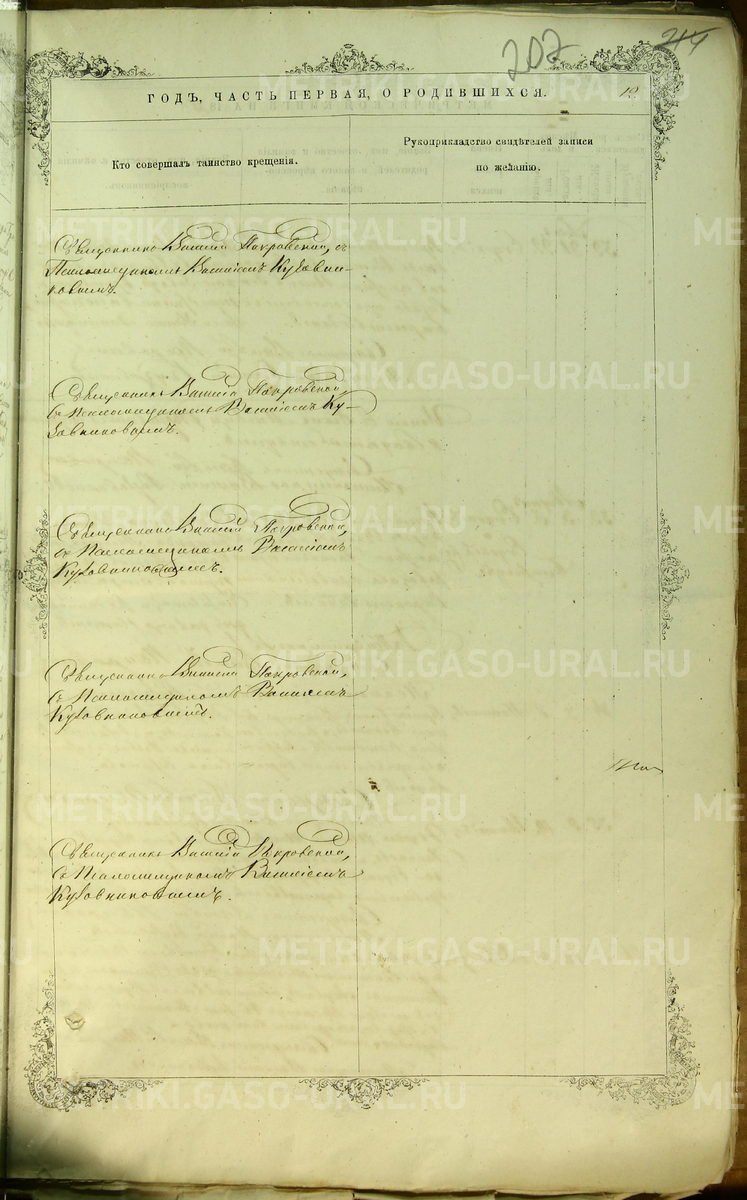 207
214
ГОДЪ, ЧАСТЬ ПЕРВАЯ, О РОДИВШИХСЯ.
12
Кто совершалъ таинство крещенія.
Рукоприкладство свидѣтелей записи
по желанію.
Священникъ Василій Покровскій, съ
Псаломщикомъ Василіемъ Кузовни-
ковымъ.
Священникъ Василій Покровскій,
съ Псаломщикомъ Василіемъ Ку-
зовниковымъ.
Священникъ Василій Покровскій,
съ Псаломщикомъ Василіемъ
Кузовниковымъ.
Священникъ Василій Покровскій,
съ Псаломщикомъ Василіемъ
Кузовниковымъ.
Священникъ Василій Покровскій,
съ Псаломщикомъ Василіемъ
Кузовниковымъ.
METRIKI.GASO-URAL.RU